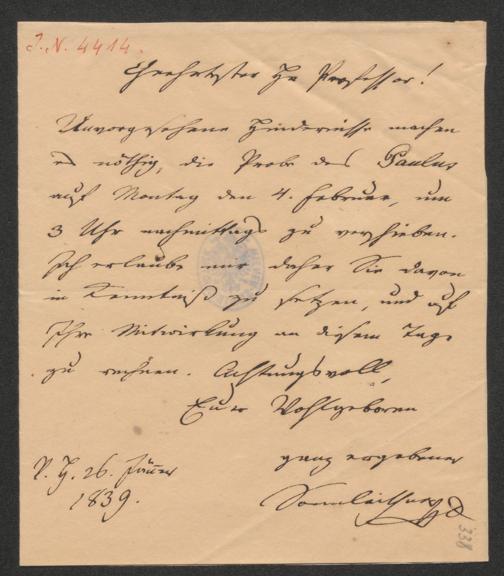 I. N. 4414.
Geehrtester Hr Professor!
Unvorgesehene Hindernisse machen
es nöthig, die Probe des Paulus
auf Montag den 4. Februar, um
3 Uhr nachmittags zu verschieben.
Ich erlaube mir daher Sie davon
in Kenntniß zu setzen, und auf
Ihre Mitwirkung an diesem Tage
zu rechnen. Achtungsvoll,
Euer Wohlgeboren
ganz ergebener
Sonnleithner
V. H. 26. Jänner
1839.
338